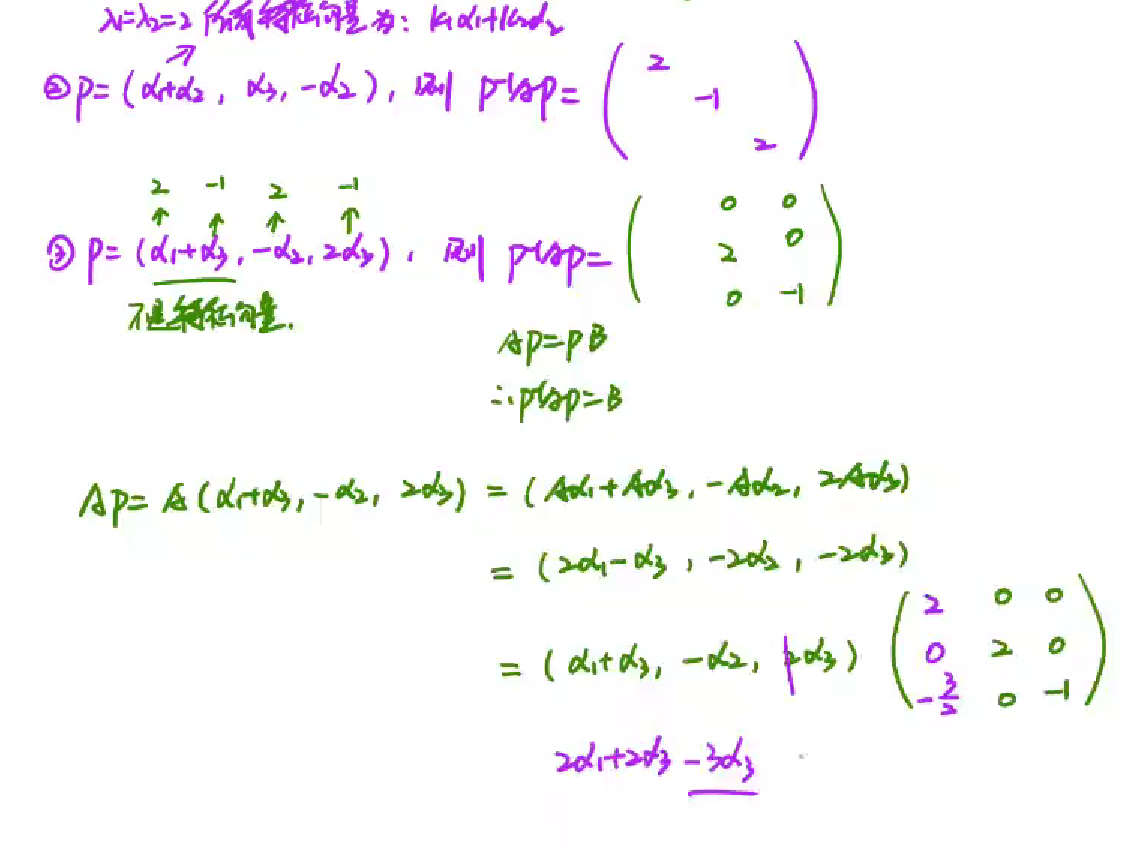 λ₁=λ₂=2 所有特征向量为: k₁α₁+k₂α₂
② P=(α₁+α₂, α₃, -α₂), 则 P⁻¹AP= ( 2
-1
2 )
2 -1 2 -1
↑ ↑ ↑ ↑
③ P=(α₁+α₃, -α₂, 2α₃), 则 P⁻¹AP= ( 0 0
2 0
0 -1 )
不是特征向量.
AP=PB
∴P⁻¹AP=B
AP=A(α₁+α₃, -α₂, 2α₃) = (Aα₁+Aα₃, -Aα₂, 2Aα₃)
= (2α₁-α₃, -2α₂, -2α₃)
= (α₁+α₃, -α₂, 2α₃) ( 2 0 0
0 2 0
-3/2 0 -1 )
2α₁+2α₃ -3α₃